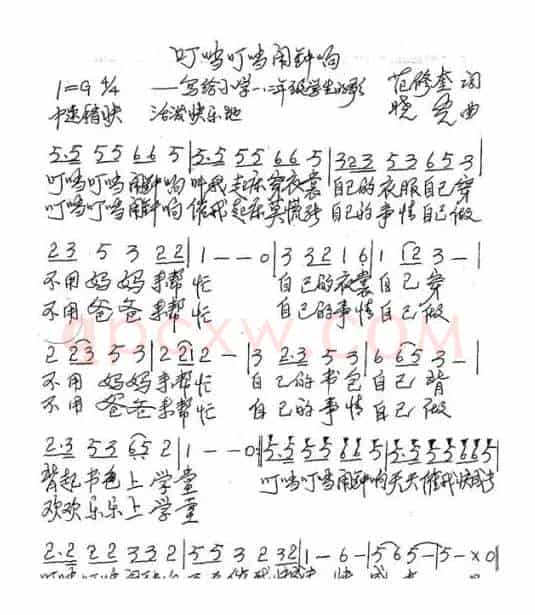 叮当叮当闹钟响
1=G 4/4 ——写给小学一、二年级学生的歌 范修奎 词
中速稍快 活泼快乐地 晓 曲
5.5 55 66 5 | 5.5 55 66 5 | 323 53 65 3 |
叮当叮当闹钟响 叫我起床穿衣裳 自己的衣服自己穿
叮当叮当闹钟响 催我起床莫慌张 自己的事情自己做
23 5 3 22 | 1 - - 0 | 3 32 1 6 | 1 12 3 - |
不用妈妈来帮忙 自己的衣裳自己穿
不用爸爸来帮忙 自己的事情自己做
2 23 5 3 | 2 221 2 - | 3 2.3 5 3 | 6 65 3 - |
不用妈妈来帮忙 自己的书包自己背
不用爸爸来帮忙 自己的事情自己做
qpcxw.com
2.3 53 65 2 | 1 - - 0 :‖ 5.5 55 66 5 | 5.5 55 66 5 |
背起书包上学堂 叮当叮当闹钟响 天天催我快成长
欢欢乐乐上学堂
2.2 22 33 2 | 55 3 2 32 | 1 - 6 - | 5 6 5 - | 5 - x 0 |